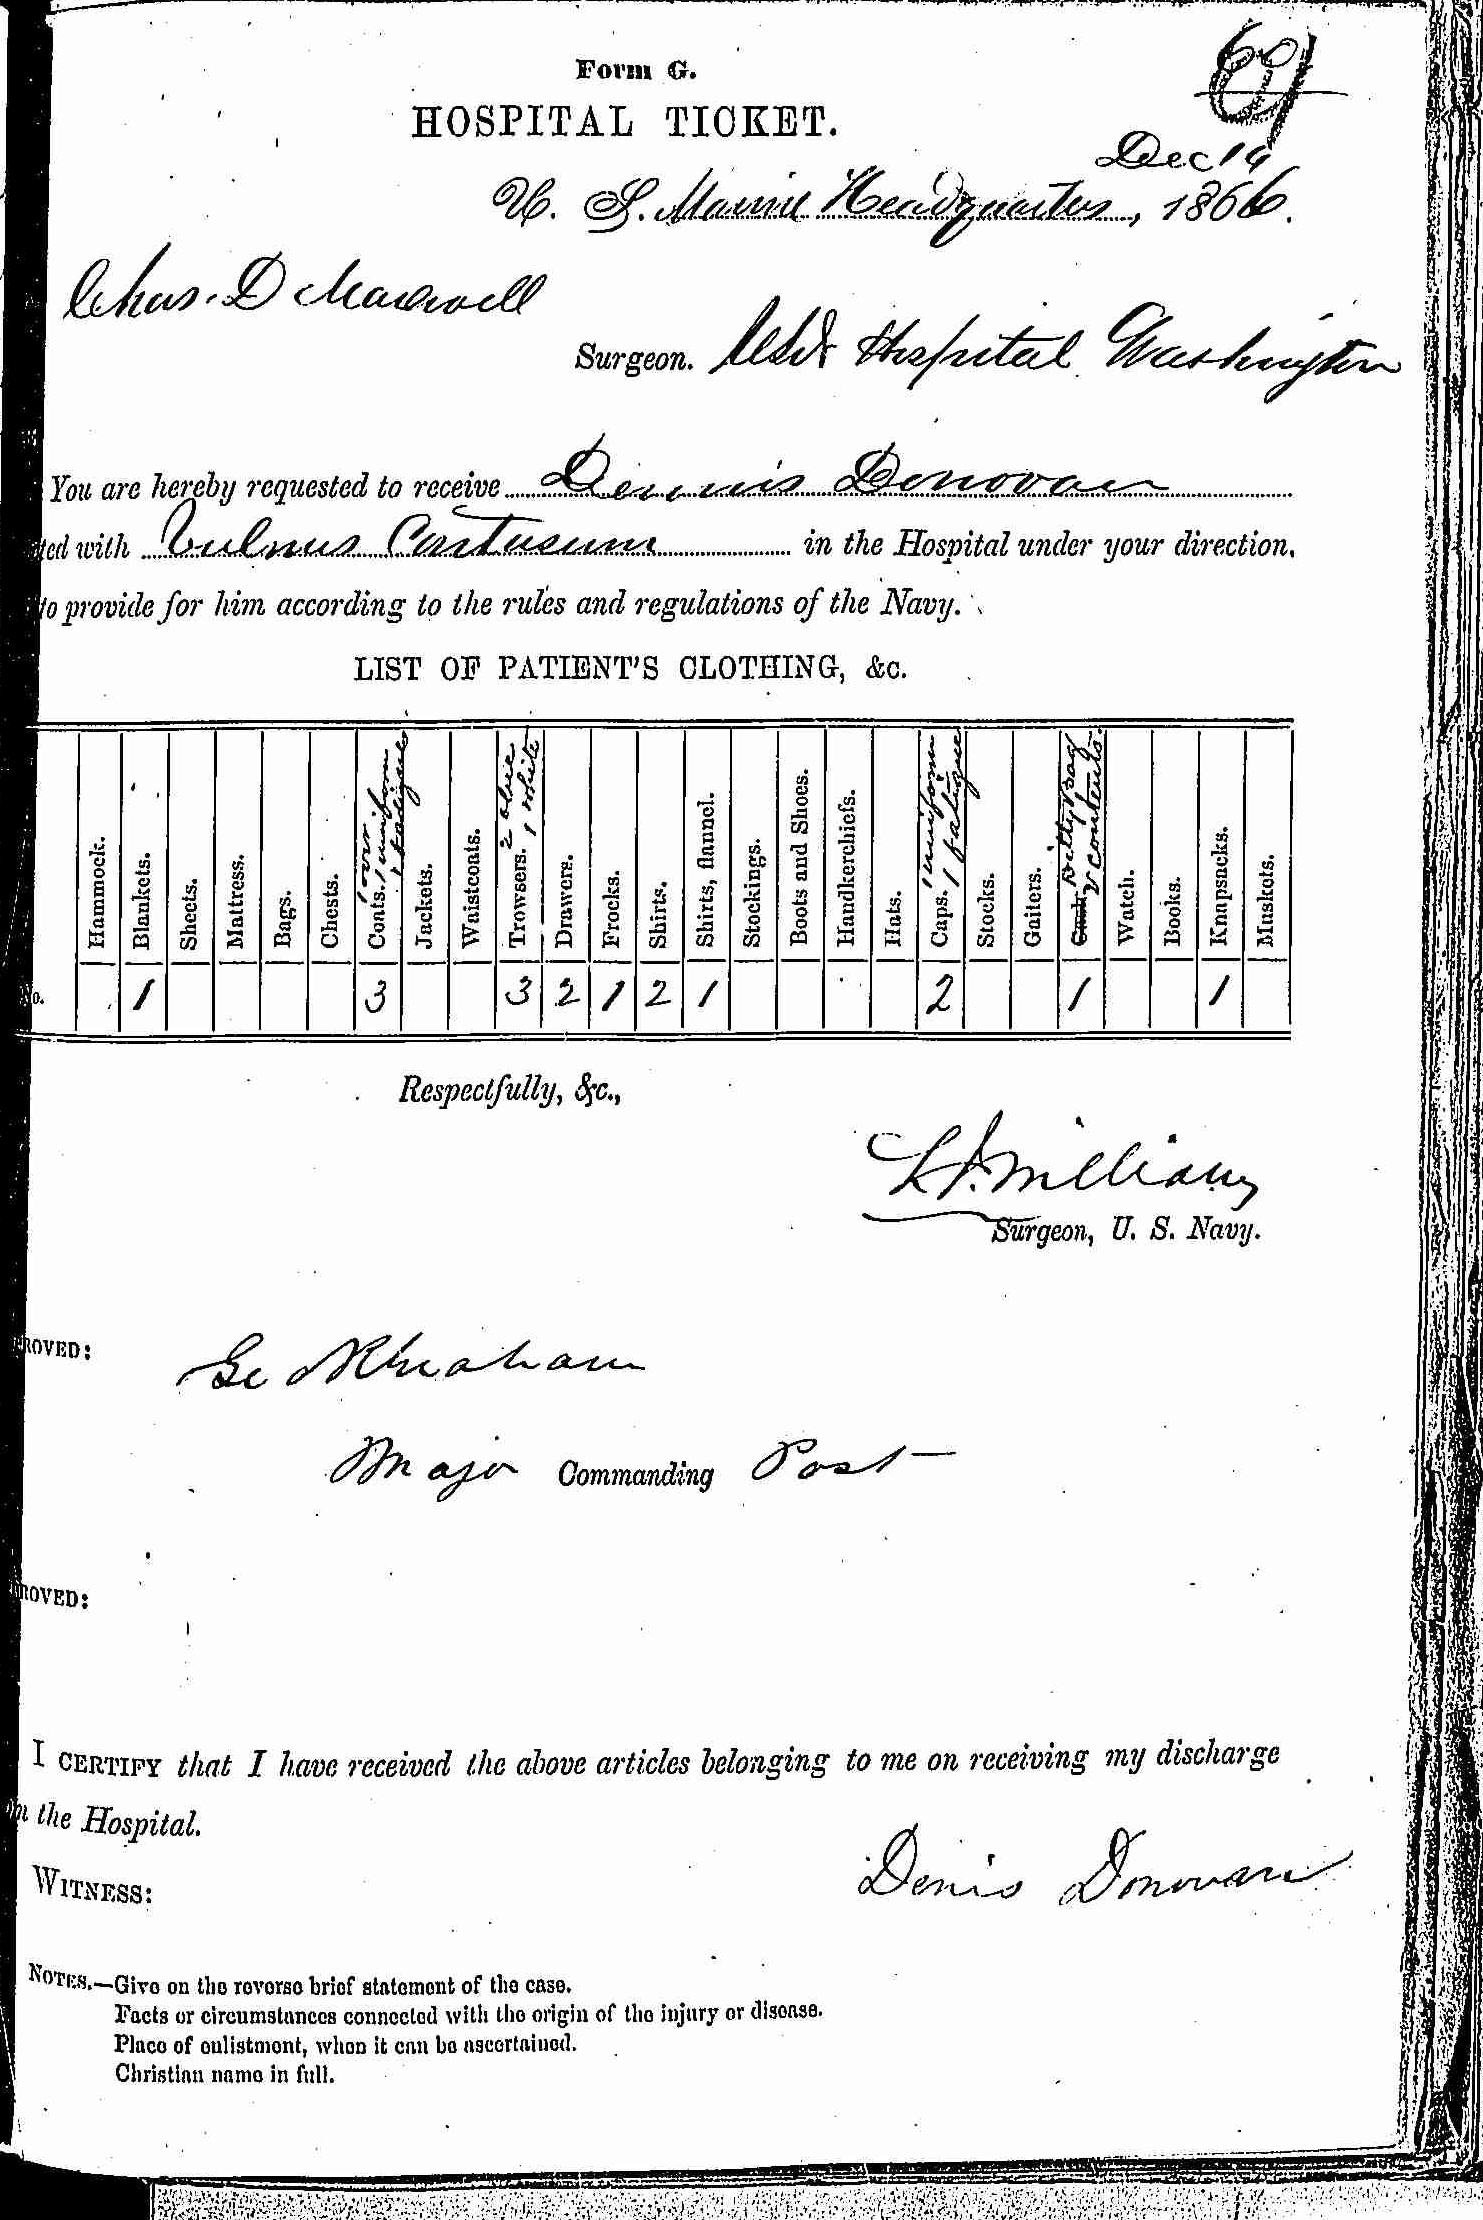 Form G.
HOSPITAL TICKET.
Dec 19
U. S. Marine Headquarters, 1866.
Chas. D Maxwell
Surgeon. Hospital Washington
You are hereby requested to receive Dennis Donovan
ted with Vulnus Contusum in the Hospital under your direction,
to provide for him according to the rules and regulations of the Navy.
LIST OF PATIENT'S CLOTHING, &c.
Hammock.
Blankets.
Sheets.
Mattress.
Bags.
Chests.
Coats. 1 over 1 uniform 1 fatigue
Jackets.
Waistcoats.
Trowsers. 2 blue 1 white
Drawers.
Frocks.
Shirts.
Shirts, flannel.
Stockings.
Boots and Shoes.
Handkerchiefs.
Hats.
Caps. 1 uniform 1 fatigue
Stocks.
Gaiters.
Ditty bag & contents.
Watch.
Books.
Knapsacks.
Muskets.
No. 1 3 3 2 1 2 1 2 1 1
Respectfully, &c.,
Williams
Surgeon, U. S. Navy.
ROVED:
Graham
Major Commanding Post
ROVED:
I CERTIFY that I have received the above articles belonging to me on receiving my discharge
m the Hospital.
WITNESS:
Denis Donovan
NOTES.—Give on the reverse brief statement of the case.
Facts or circumstances connected with the origin of the injury or disease.
Place of enlistment, when it can be ascertained.
Christian name in full.